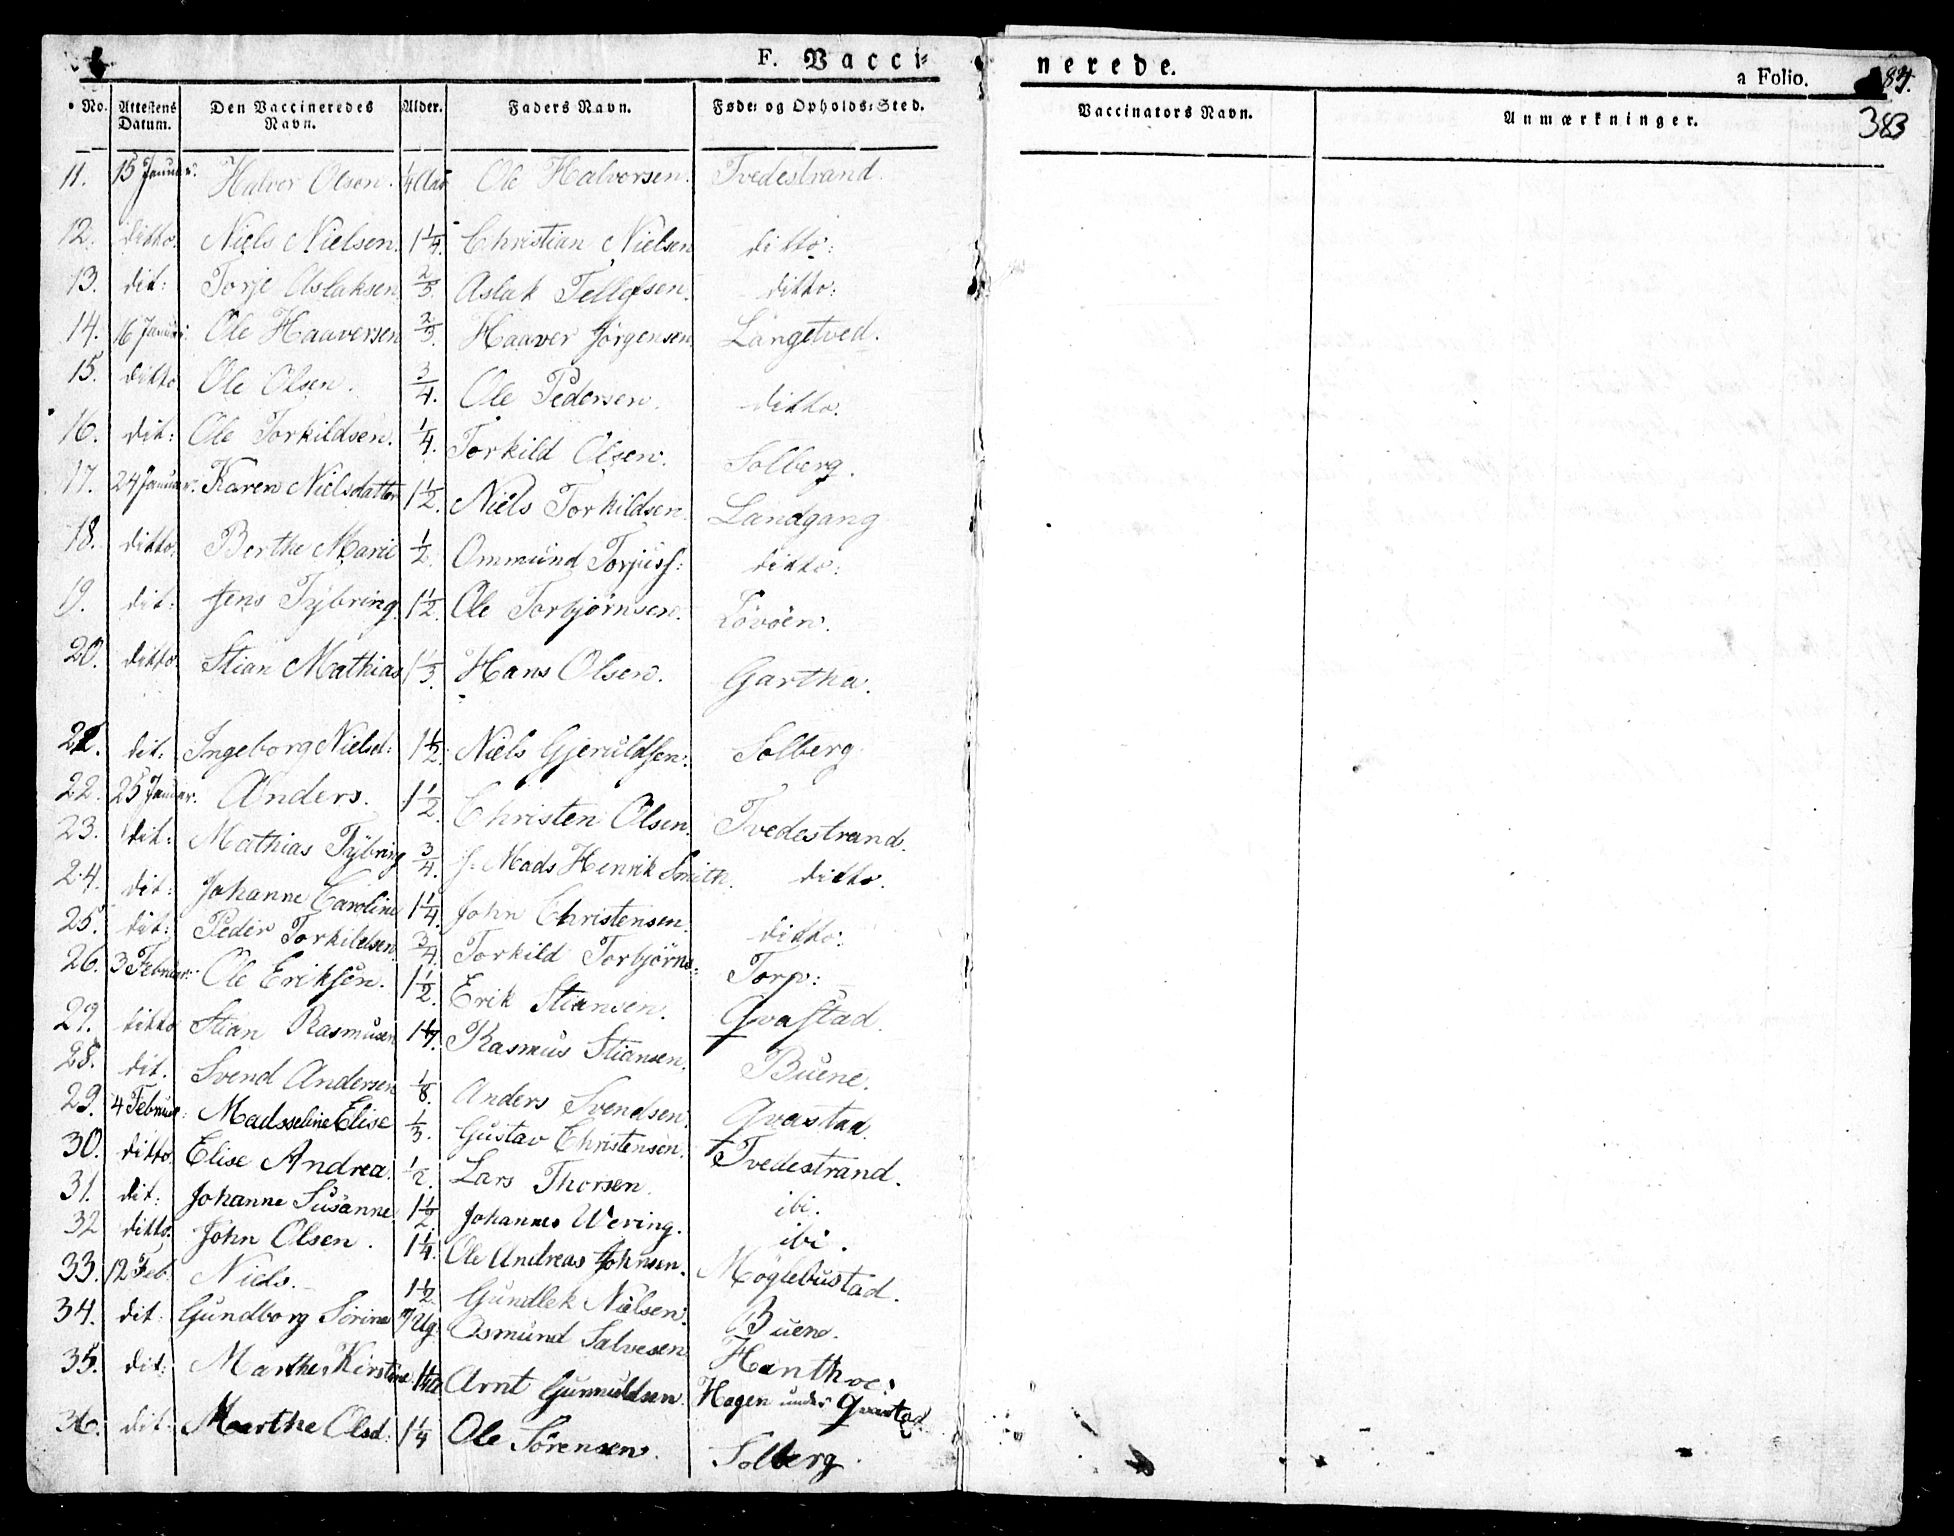 F. Vacci-
nerede.
a Folio.
84.
383
No. Attestens Datum. Den Vaccineredes Navn. Alder. Faders Navn. Føde- og Opholds-Sted. Vaccinators Navn. Anmærkninger.
11. 15 Januar: Halvor Olsen. 1/4 Aar Ole Halvorsen. Tvedestrand.
12. ditto. Niels Nielsen. 1 1/4. Christian Nielsen ditto:
13. dit: Torje Aslaksen 2/3. Aslak Tellefsen. ditto:
14. 16 Januar: Ole Haaversen 2/3. Haaver Jørgensen. Langetved.
15. ditto Ole Olsen. 3/4. Ole Pedersen. ditto.
16. dit: Ole Torkildsen. 1/4. Torkild Olsen. Solberg.
17. 24 Januar. Karen Nielsdatter 1 1/2. Niels Torkildsen. Landgang
18. ditto. Berthe Marie 1/2. Ommund Torjuss: ditto:
19. dit: Jens Tybring. 1 1/2. Ole Torbjørnsen. Løvøen.
20. ditto. Stian Mathias 1 1/3. Hans Olsen. Gartha.
21. dit: Ingeborg Nielsd: 1 1/2. Niels Gjeruldsen. Solberg
22. 25 Januar. Anders. 1 1/2. Christen Olsen. Tvedestrand.
23. dit: Mathias Tybring 3/4. S. Mads Henrik Smith. ditto.
24. dit: Johanne Caroline 1 1/4. John Christensen. ditto:
25. dit: Peder Torkildsen. 3/4. Torkild Torbjørns: Torp:
26. 3 Februar: Ole Eriksen. 1 1/2. Erik Stiansen. Qvastad.
27. ditto Stian Rasmusen 1 1/4. Rasmus Stiansen. Buene.
28. dit. Svend Andersen 1/8. Anders Svendsen. Qvastad.
29. 4 Februar: Madsseline Elise 1/3. Gustav Christensen. Tvedestrand.
30. ditto. Elise Andrea. 1/2. Lars Thorsen. ibi.
31. dit: Johanne Susanne 1 1/2. Johannes Wering. ibi.
32 ditto. John Olsen. 1 1/4. Ole Andreas Johnsen. Møglebustad.
33. 12 Feb. Niels. 1 1/2 Gundlek Nielsen. Buene.
34. dit: Gundborg Sørine 7 Ug: Osmund Salvesen
35. dit: Marthe Kirstine Arnt Gunnuldsen. Hagen under Qvastad
36. dit: Marthe Olsd: 1 1/4 Ole Sørensen. Solberg.